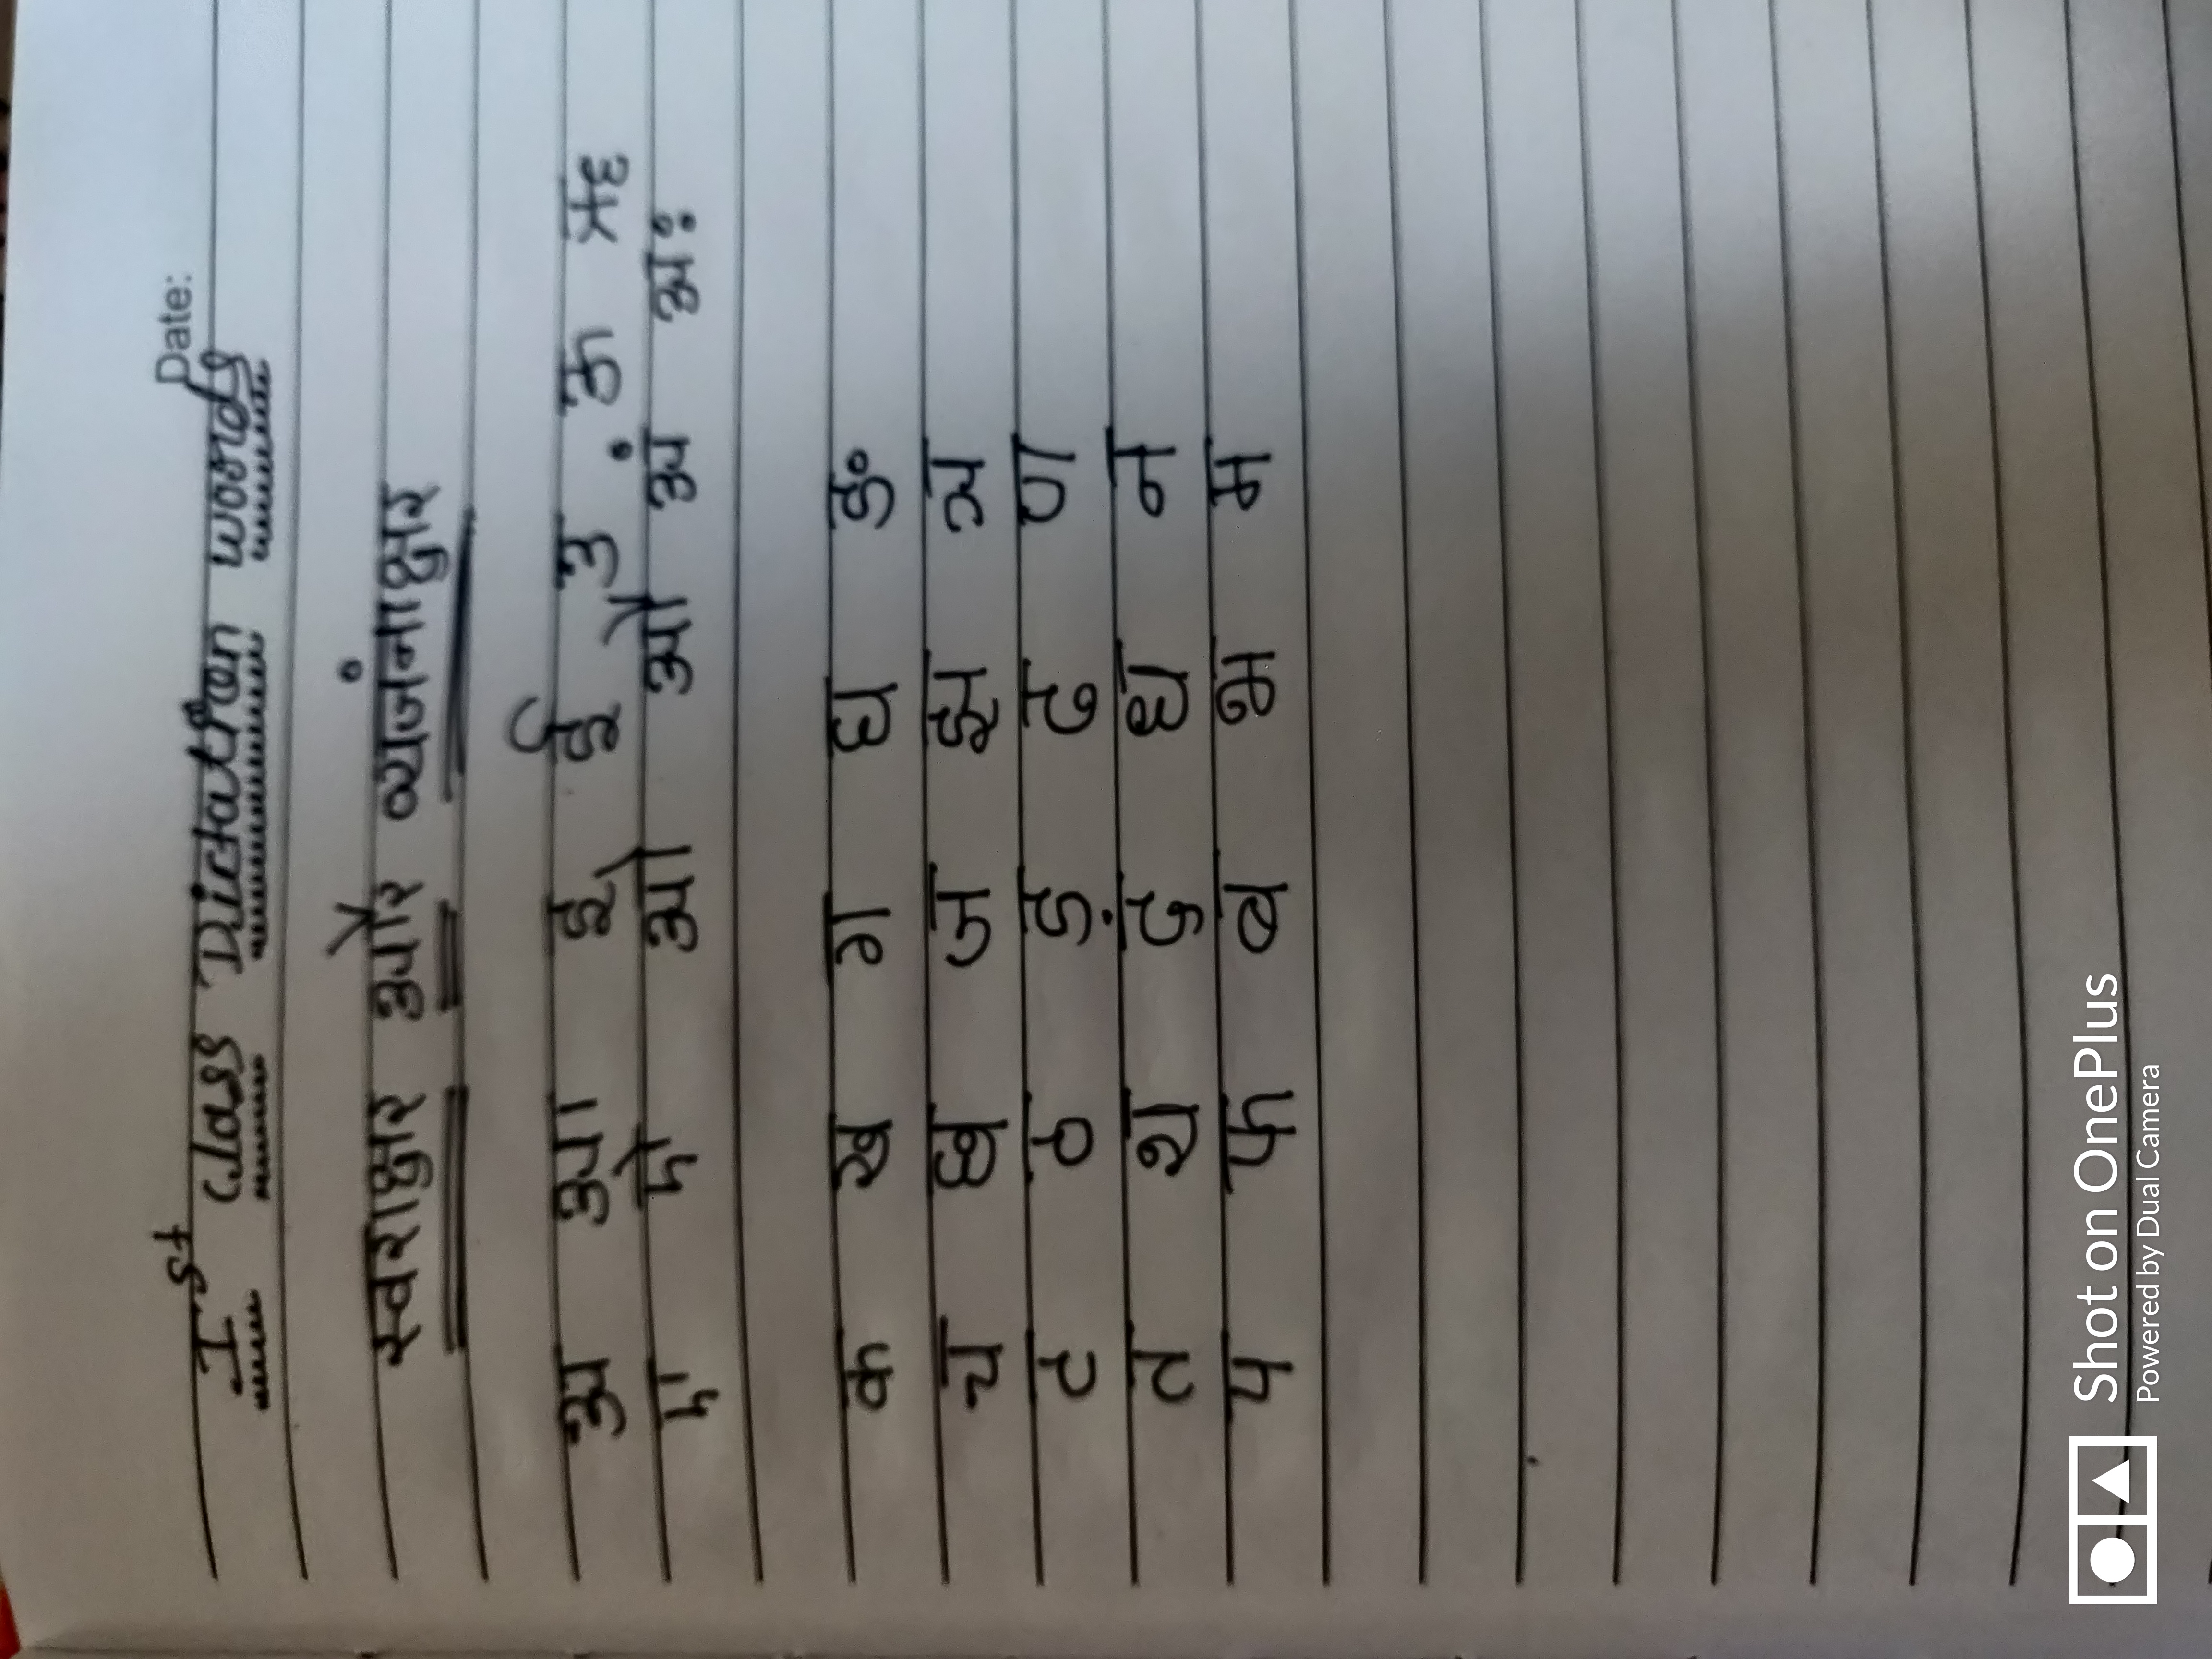 Date:
Ist Class Dictation words
स्वराक्षर और व्यजंनाक्षर
अ आ इ ई उ ऊ ऋ
ए ऐ ओ औ अं अः
क ख ग घ ङ
च छ ज झ ञ
ट ठ ड ढ ण
त थ द ध न
प फ ब भ म
Shot on OnePlus
Powered by Dual Camera